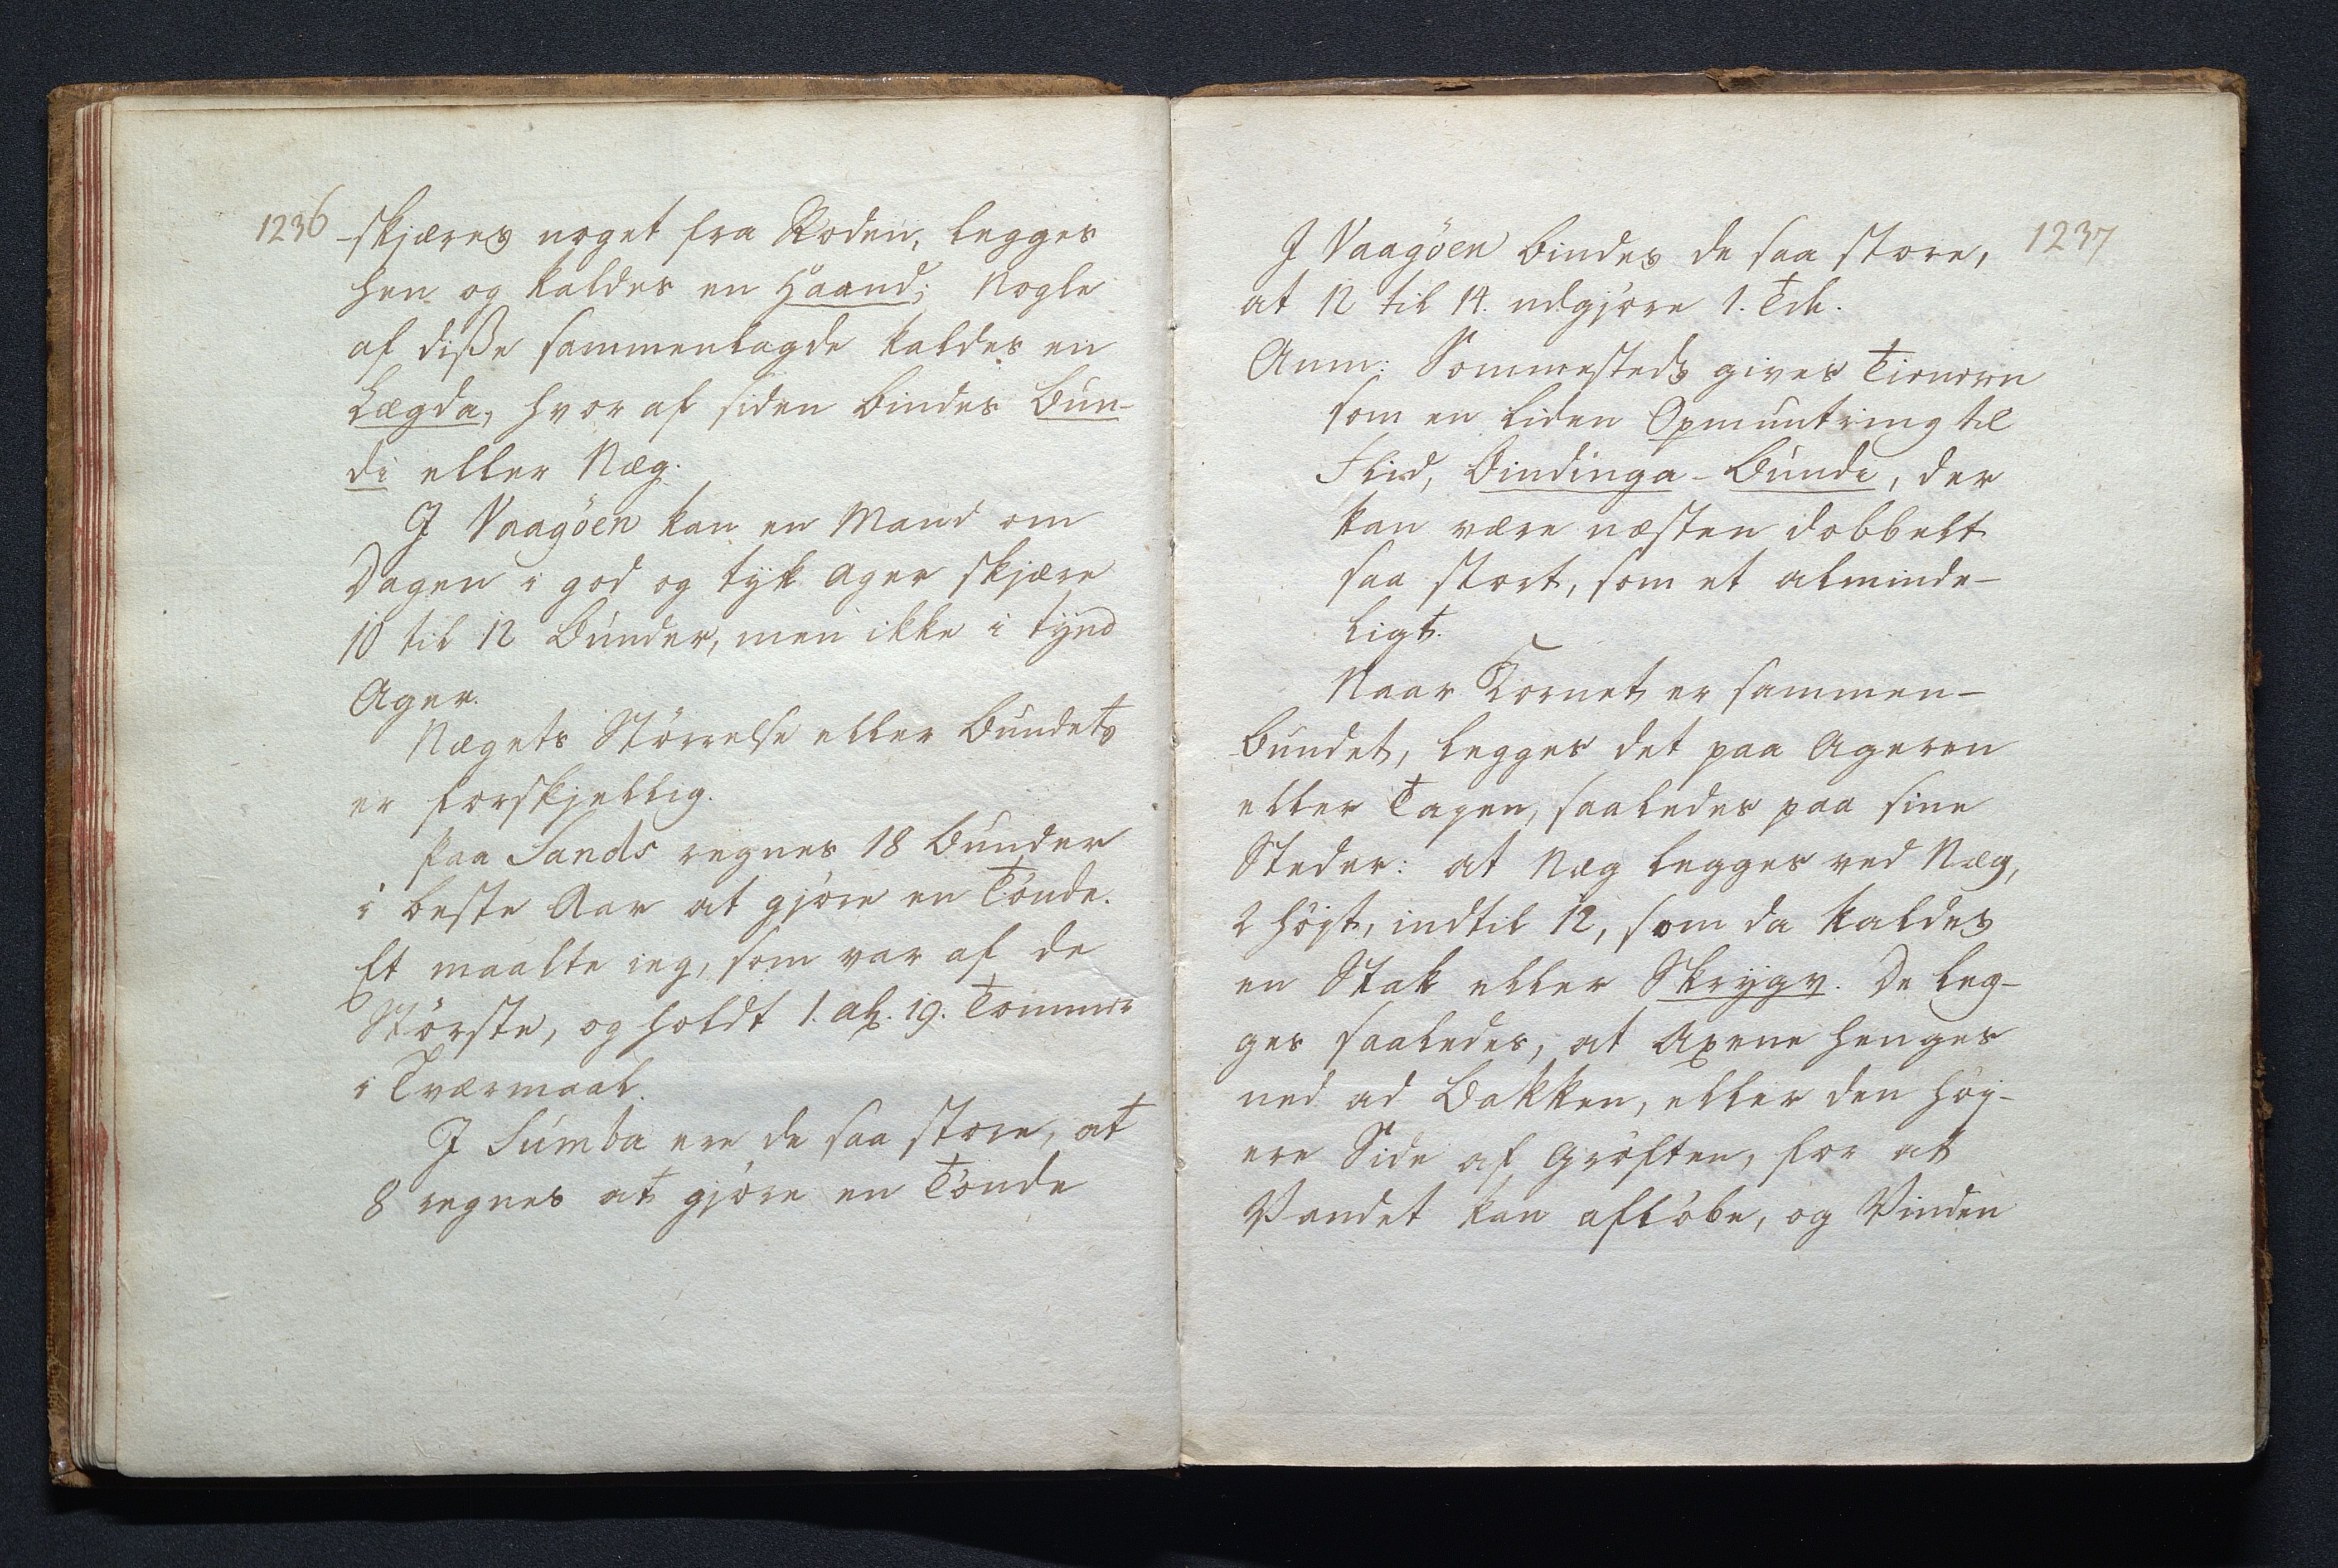 1236
skjæres noget fra Roden, legges
hen og kaldes en Haand; Nogle
af disse sammenlagde kaldes en
Lægda, hvor af siden bindes Bun-
di eller Neg.
I Vaagöen kan en Mand om
Dagen i god og tyk Ager skjære
10 til 12 Bunder, men ikke i tynd
Ager.
Negets Störrelse eller Bundets
er forskjellig.
Paa Sands regnes 18 Bunder
i beste Aar at gjöre en Tönde.
Et maalte ieg, som var af de
Störste, og holdt 1. al. 19. Tommer
i Tværmaal.
I Sumba ere de saa store, at
8 regnes at gjöre en Tönde
1237
I Vaagöen bindes de saa store,
at 12 til 14. udgjöre 1. Tde.
Anm: Sommesteds gives Tieneren
som en liden Opmuntring til
Flid, Bindinga-Bundi, der
kan være næsten dobbelt
saa stort, som et alminde-
ligt.
Naar Kornet er sammen-
bundet, legges det paa Ageren
eller Tagen, saaledes paa sine
Steder: at Neg legges ved Neg,
2 höyt, indtil 12, som da kaldes
en Stak eller Skrygv. De leg-
ges saaledes, at Axene henges
ned ad Bakken, eller den höy-
ere Side af Gröften, for at
Vandet kan aflöbe, og Vinden